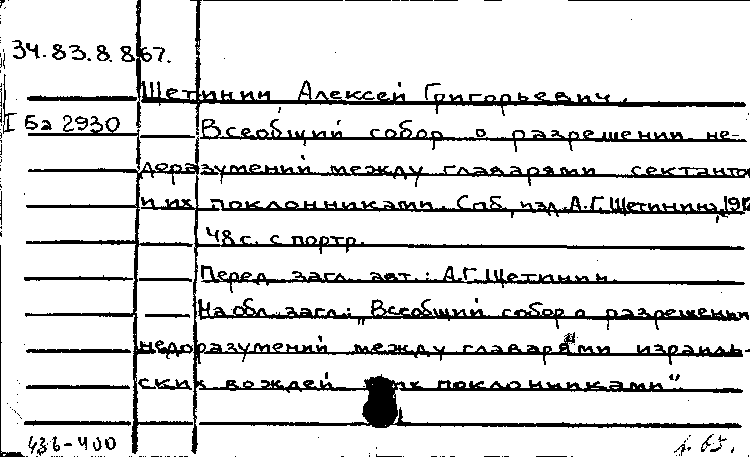 34.83.8.867.
Щетинин Алексей Григорьевич.
I Ба 2930 Всеобщий собор о разрешении не-
доразумений между главарями сектантов
и их поклонниками. Спб, изд. А.Г. Щетинина,
48 с. с портр.
Перед загл. авт.: А.Г. Щетинин.
На обл. загл.: „Всеобщий собор о разрешении
недоразумений между главарями израиль-
ских вождей их поклонниками".
436-400